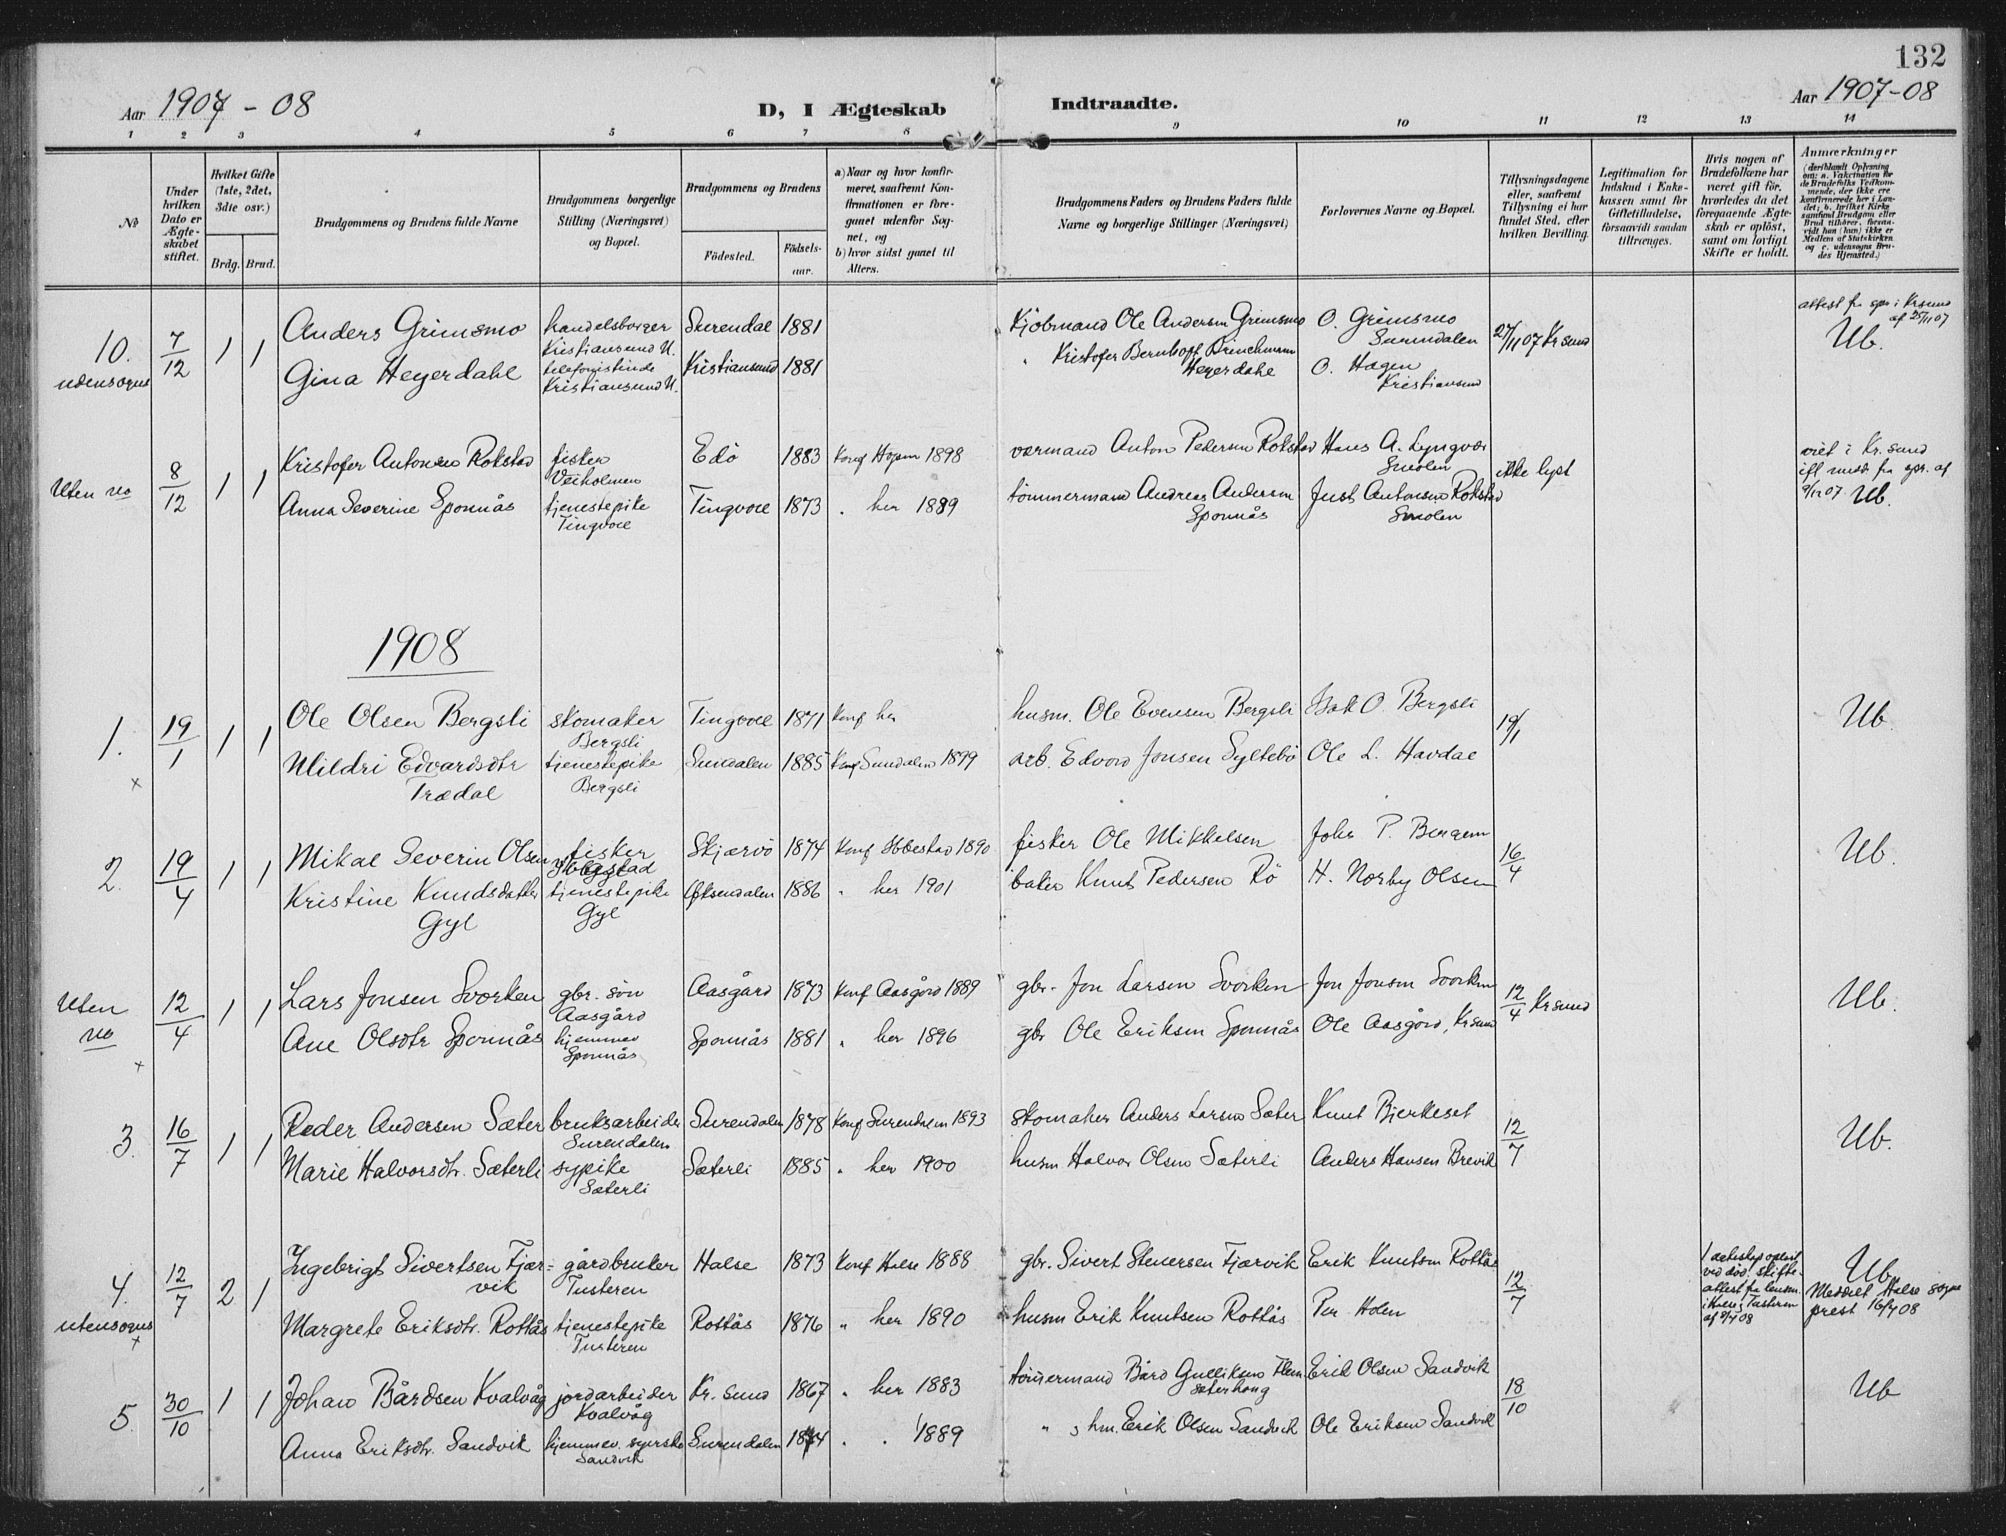 132
Aar 1907 - 08
D, I Ægteskab Indtraadte.
Aar 1907-08
1 2 3 4 5 6 7 8 9 10 11 12 13 14
No
Under hvilken Dato er Ægteskabet stiftet.
Hvilket Gifte (1ste, 2det, 3die osv.)
Brdg. Brud.
Brudgommens og Brudens fulde Navne
Brudgommens borgerlige Stilling (Næringsvei) og Bopæl.
Brudgommens og Brudens
Födested.
Födsels-aar.
a) Naar og hvor konfirmeret, saafremt Konfirmationen er foregaaet udenfor Sognet, og
b) hvor sidst gaaet til Alters.
Brudgommens Faders og Brudens Faders fulde Navne og borgerlige Stillinger (Næringsvei)
Forlovernes Navne og Bopæl.
Tillysningsdagene eller, saafremt Tillysning ei har fundet Sted, efter hvilken Bevilling.
Legitimation for Indskud i Enkekassen samt for Giftetilladelse, forsaavidt saadan tiltrænges.
Hvis nogen af Brudefolkene har været gift för, hvorledes da det foregaaende Ægteskab er oplöst, samt om lovligt Skifte er holdt.
Anmærkninger
(deriblandt Oplysning om: a. Vakcination for de Brudefolks Vedkommende, der ikke ere konfirmerede her i Landet; b. hvilket Kirkesamfund Brudgom eller Brud tilhörer, forsaavidt han (hun) ikke er Medlem af Statskirken og c. udensogns Brudes Hjemsted.)
10. udensogns 7/12 1 1
Anders Grimsmo handelsborger Kristiansund N. Surendal 1881 Kjöbmand Ole Andersen Grimsmo O. Grimsmo Surendalen 27/11 07 Kr sund
attest fra spr i Kr sund af 25/11 07
Ub.
Gina Heyerdahl telefonistinde Kristiansund N. Kristiansund 1881 " Kristofer Bernhoft Brinchmann Heyerdahl O. Hagen Kristiansund
Uten no 8/12 1 1
Kristofer Antonsen Rokstad fisker Veiholmen Edö 1883 Konf Hopen 1898 værmand Anton Pedersen Rokstad Hans A. Lyngvær Smölen ikke lyst
viet i Kr. sund ifl medd. fra spr. af 9/12 07 Ub.
Anna Severine Spornås tjenestepike Tingvoll Tingvoll 1873 " her 1889 tömmermand Andreas Andersen Spornås Just Antonsen Rokstad Smölen
1908
1. 19/1 1 1
Ole Olsen Bergsli skomaker Bergsli Tingvoll 1871 Konf her husm. Ole Evensen Bergsli Isak O. Bergsli 19/1 Ub
Mildri Edvardsdtr Trædal tjenestepike Bergsli Sundalen 1885 Konf Sundalen 1899 arb. Edvard Jonsen Syltebö Ole L. Havdal
x
2. 19/4 1 1
Mikal Severin Olsen fisker Ibbestad Skjærvö 1874 Konf Ibbestad 1890 fisker Ole Mikkelsen Johs P. Bergem 16/4 Ub.
Kristine Knudsdatter Gyl tjenestepike Gyl Öksendalen 1886 " her 1901 baker Knut Pedersen Rö H. Norby Olsen
Uten no 12/4 1 1
Lars Jonsen Svorken gbr. sön Aasgård Aasgård 1873 Konf Aasgård 1889 gbr. Jon Larsen Svorken Jon Jonsen Svorken 12/4 Kr sund Ub.
Ane Olsdtr Spornås hjemmev Spornås Spornås 1881 " her 1896 gbr Ole Eriksen Spornås Ole Aasgård, Kr sund
x
3. 16/7 1 1
Peder Andersen Sæter bruksarbeider Surendalen Surendalen 1878 Konf Surendalen 1893 skomaker Anders Larsen Sæter Knut Bjerkeset 12/7 Ub.
Marie Halvorsdtr. Sæterli sypike Sæterli Sæterli 1885 " her 1900 husm Halvor Olsen Sæterli Anders Hansen Brevik
4. utensogns 12/7 2 1
Ingebrigt Sivertsen Fjærvik gårdbruker Tusteren Halse 1873 Konf Halse 1888 gbr. Sivert Stenersen Fjærvik Erik Knutsen Rottås 12/7
1 ækteskap oplöst ved död. skifteattest fra lensm. i Halse, Tusteren af 9/7 08
Ub. Meddelt Halse sogneprest 16/7 08
Margrete Eriksdtr. Rottås tjenestepike Tusteren Rottås 1876 " her 1890 husm Erik Knutsen Rottås Per Holen
x
5. 30/10 1 1
Johan Bårdsen Kvalvåg jordarbeider Kvalvåg Kr. sund 1867 " her 1883 tömmermand Bård Gulliksen Flemsæterhaug Erik Olsen Sandvik 18/10 Ub
Anna Eriksdtr. Sandvik hjemmev. syerske Sandvik Surendalen 1874 " " 1889 " hm. Erik Olsen Sandvik Ole Eriksen Sandvik